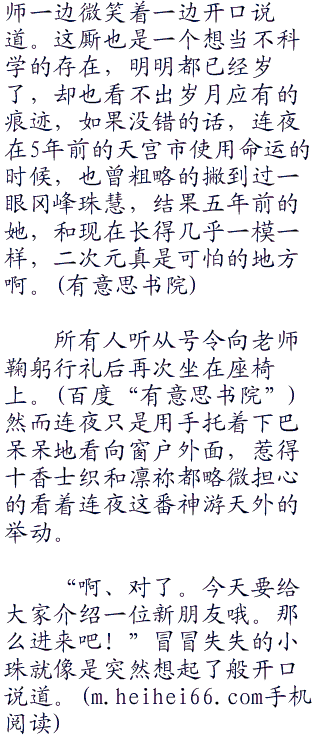 师一边微笑着一边开口说
道。这厮也是一个想当不科
学的存在，明明都已经岁
了，却也看不出岁月应有的
痕迹，如果没错的话，连夜
在5年前的天宫市使用命运的
时候，也曾粗略的撇到过一
眼冈峰珠慧，结果五年前的
她，和现在长得几乎一模一
样，二次元真是可怕的地方
啊。(有意思书院)
所有人听从号令向老师
鞠躬行礼后再次坐在座椅
上。(百度“有意思书院”)
然而连夜只是用手托着下巴
呆呆地看向窗户外面，惹得
十香士织和凛祢都略微担心
的看着连夜这番神游天外的
举动。
“啊、对了。今天要给
大家介绍一位新朋友哦。那
么进来吧！”冒冒失失的小
珠就像是突然想起了般开口
说道。(m.heihei66.com手机
阅读)